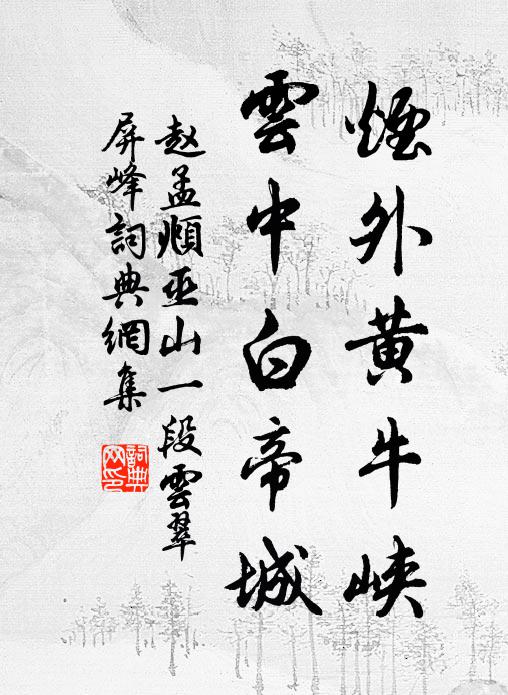 煙外黄牛峽
雲中白帝城
赵孟頫巫山一段雲翠
屏峰詞典網集
詞典
网印